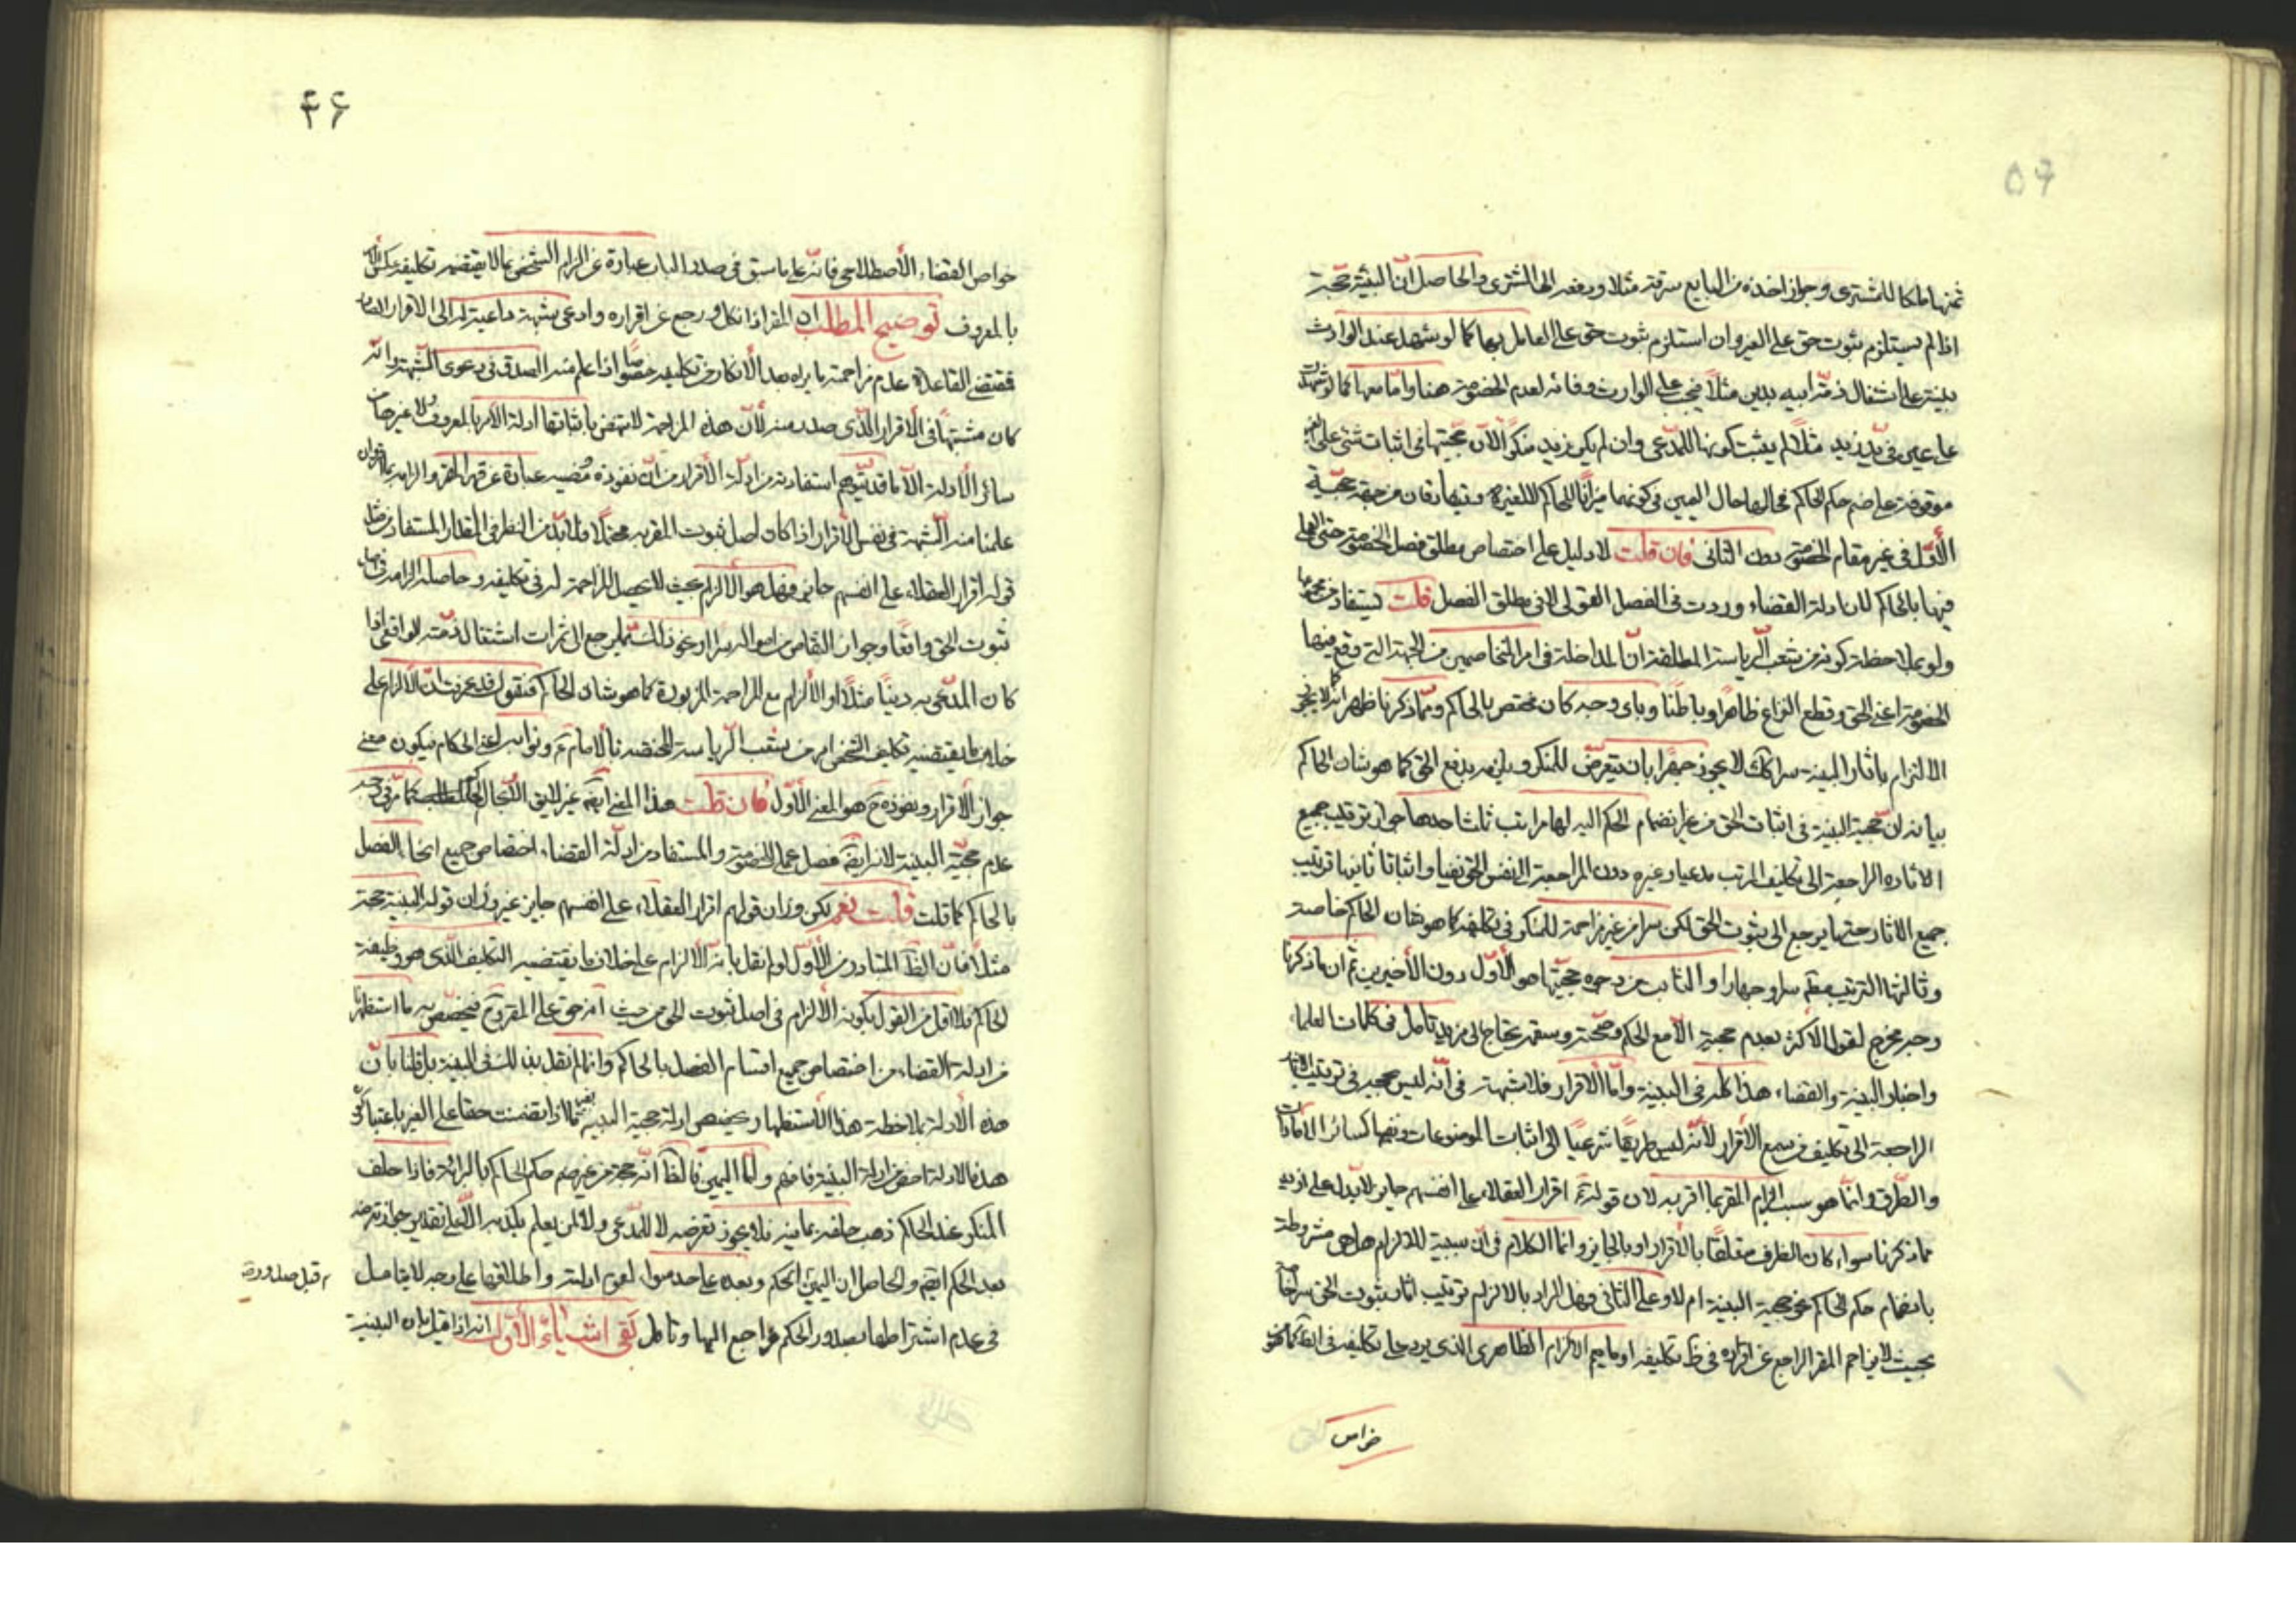 ثمنها ملكا للمشترى وجواز اخذه من البايع سرقة مثلا ودفعه الى المشترى والحاصل انّ البيّنة حجّة
اذا لم يستلزم ثبوت حق على الغير وان استلزم ثبوت حق على العامل بها كما لو شهد عند الوارث
بينة على اشتغال ذمّة ابيه بدين مثلا فيجب على الوارث وفائه لعدم الخصومة هنا وامّا معها كما لو شهدت
على عين فى يد زيد مثلا لم يثبت كونها للمدّعى وان لم يكن زيد منكرا لانّ حجيّتها فى اثبات شئ على الغير
موقوفة على ضم حكم الحاكم فحالها حال اليمين فى كونها ميزانا للحاكم لا لغيره ويفارقان من جهة حجيّة
الأوّل فى غير مقام الخصومة دون الثانى فان قلت لا دليل على اختصاص مطلق فصل الخصومة حتى العملى
فيها بالحاكم لان ادلة القضاء وردت فى الفصل القولى لا فى مطلق الفصل قلت يستفاد من مجموعها
ولو بملاحظة كونه من شعب الرياسة المطلقة انّ المداخلة فى امر المتخاصمين من الجهة التى وقع فيها
الخصومة اعنى الحق وقطع النزاع ظاهرا وباطنا وباى وجه كان مختص بالحاكم وممّا ذكرنا ظهر انه كما لا يجوز
الالتزام باثار البينة سرا كك لا يجوز جهرا بان يتعرّض للمنكر ويلزمه بدفع الحق كما هو شان الحاكم
بيانه ان حجية البينة فى اثبات الحق من غير انضمام الحكم اليه لها مراتب ثلث احدها جواز ترتيب جميع
الاثار الراجعة الى تكليف المرتب مدعيا وغيره دون المراجعة الى نفس الحق نفيا واثباتا ثانيها ترتيب
جميع الاثار حتى ما يرجع الى ثبوت الحق لكن سرا من غير مزاحمة للمنكر فى تكليفه كما هو شان الحاكم خاصة
وثالثها الترتيب مطم سرا وجهارا والثابت من وجوه حجيّتها هو الأوّل دون الأخيرين ثم ان ما ذكرنا
وجه مخرج لقول الاكثر بعدم حجية الا مع الحكم وصحته وسقمه يحتاج الى مزيد تامل فى كلمات العلماء
واخبار البينة والقضاء هذا كله فى البينة وامّا الاقرار فلا شبهة فى انّه ليس حجة فى ترتيب الاثار
الراجعة الى تكليف من سمع الاقرار لأنّه ليس طريقا شرعيا الى اثبات الموضوعات ونفيها كسائر الامارات
والطّرق وانّما هو سبب الزام المقر بما اقر به لان قوله ع اقرار العقلاء على انفسهم جايز لا يدل على ازيد
مما ذكرنا سواء كان الظرف متعلقا بالاقرار او بالجايز وانما الكلام فى انّ سببية للالزام هل هى مشروطة
بانضمام حكم الحاكم نحو حجية البينة ام لا وعلى الثانى وهل المراد بالالزام ترتيب اثار ثبوت الحق سرا خاصة
بحيث لا يزاحم المقر الراجع عن اقراره فى ظ تكليفه او ما يعم الالزام الظاهرى الذى يرد على تكليفه فى الظ كما هو
خواص
خواص القضاء الأصطلاحى فانّه على ما سبق فى صدر الباب عبارة عن الزام الشخص بما لا يقتضيه تكليفه عكس الأمر
بالمعروف توضيح المطلب ان المقر اذا نكل ورجع عن اقراره وادعى شبهة داعية له الى الاقرار
فمقتضى القاعدة عدم مزاحمة ما يراه بعد الانكار من تكليفه خصوصا اذا علم منه الصدق فى دعوى الشبهة وانّه
كان مشتبها فى الأقرار الّذى صدر منه لأن هذه المزاحمة لا تنهض باثباتها ادلة الأمر بالمعروف ولا غيرها من
سائر الأدلة الا ما قد يتوهم استفادته من ادلّة الأقرار من انّ نفوذه ومضيه عبارة عن قهر المقر والزامه بالاقرار وان
علمنا منه الشّبهة فى نفس الأقرار اذا كان اصل ثبوت المقر به محتملا فلا بدّ من النظر فى المقدار المستفاد من مثل
قوله اقرار العقلاء على انفسهم جايز وهل هو الألزام بحيث لا يحصل المزاحمة له فى تكليفه وحاصله الزامه
ثبوت الحق واقعا وجواز التقاص من امواله سرا ونحو ذلك ممّا يرجع الى ثمرات اشتغال ذمّته الواقعى اذا
كان المدّعى به دينا مثلا او الألزام مع المزاحمة المزبورة كما هو شان الحاكم فنقول قد عرفت انّ الألزام على
خلاف ما يقتضيه تكليف الشخص امر من شعب الرّياسة المختصة بالأمام ع ونوابه اعنى الحكام فيكون معنى
جواز الأقرار ونفوذه ح هو المعنى الأوّل فان قلت هذا المعنى ايضا غير لايق الّا بحال الحاكم كما مرّ فى وجه
عدم حجيّة البينة لانه ايضا فصل عملى للخصومة والمستفاد من ادلّة القضاء اختصاص جميع انحاء الفصل
بالحاكم كما قلت قلت نعم لكن وزان قولهم اقرار العقلاء على انفسهم جايز غير وزان قوله البينة حجة
مثلا فانّ الظّ المتبادر من الأوّل لو لم نقل بانه الألزام على خلاف ما يقتضيه التكليف الّذى هو وظيفة
الحاكم فلا اقل من القول بكونه الألزام فى اصل ثبوت الحق من حيث انه حق على المقر وح فيخصّص به ما استظهرنا
من ادلة القضاء من اختصاص جميع اقسام الفصل بالحاكم وانما لم نقل بذلك فى البينة بل قلنا بانّ
هذه الأدلة بملاحظة هذا الأستظهار يخصص ادلة حجية البينة فيما اذا تضمنت حقا على الغير باعتبار كون
هذه الادلة اخص من ادلة البينة فافهم وامّا اليمين فالظ انّه حجة من غير ضم حكم الحاكم بالمرة فاذا حلف
المنكر عند الحاكم ذهب حلفه بما فيه فلا يجوز تعرضه لا للمدّعى ولا لمن يعلم بكذبه الّا على تقدير جواز تعرضه
بعد الحكم ايضا والحاصل ان اليمين الحكم وبعده على حد سواء لعموم ادلته واطلاقها على وجه لا يتامل
قبل صدوره
فى عدم اشتراطها بصدور الحكم فراجع اليها وتامل بقى اشياء الأوّل انه اذا قيل بان البينة
۴۶
۵۶